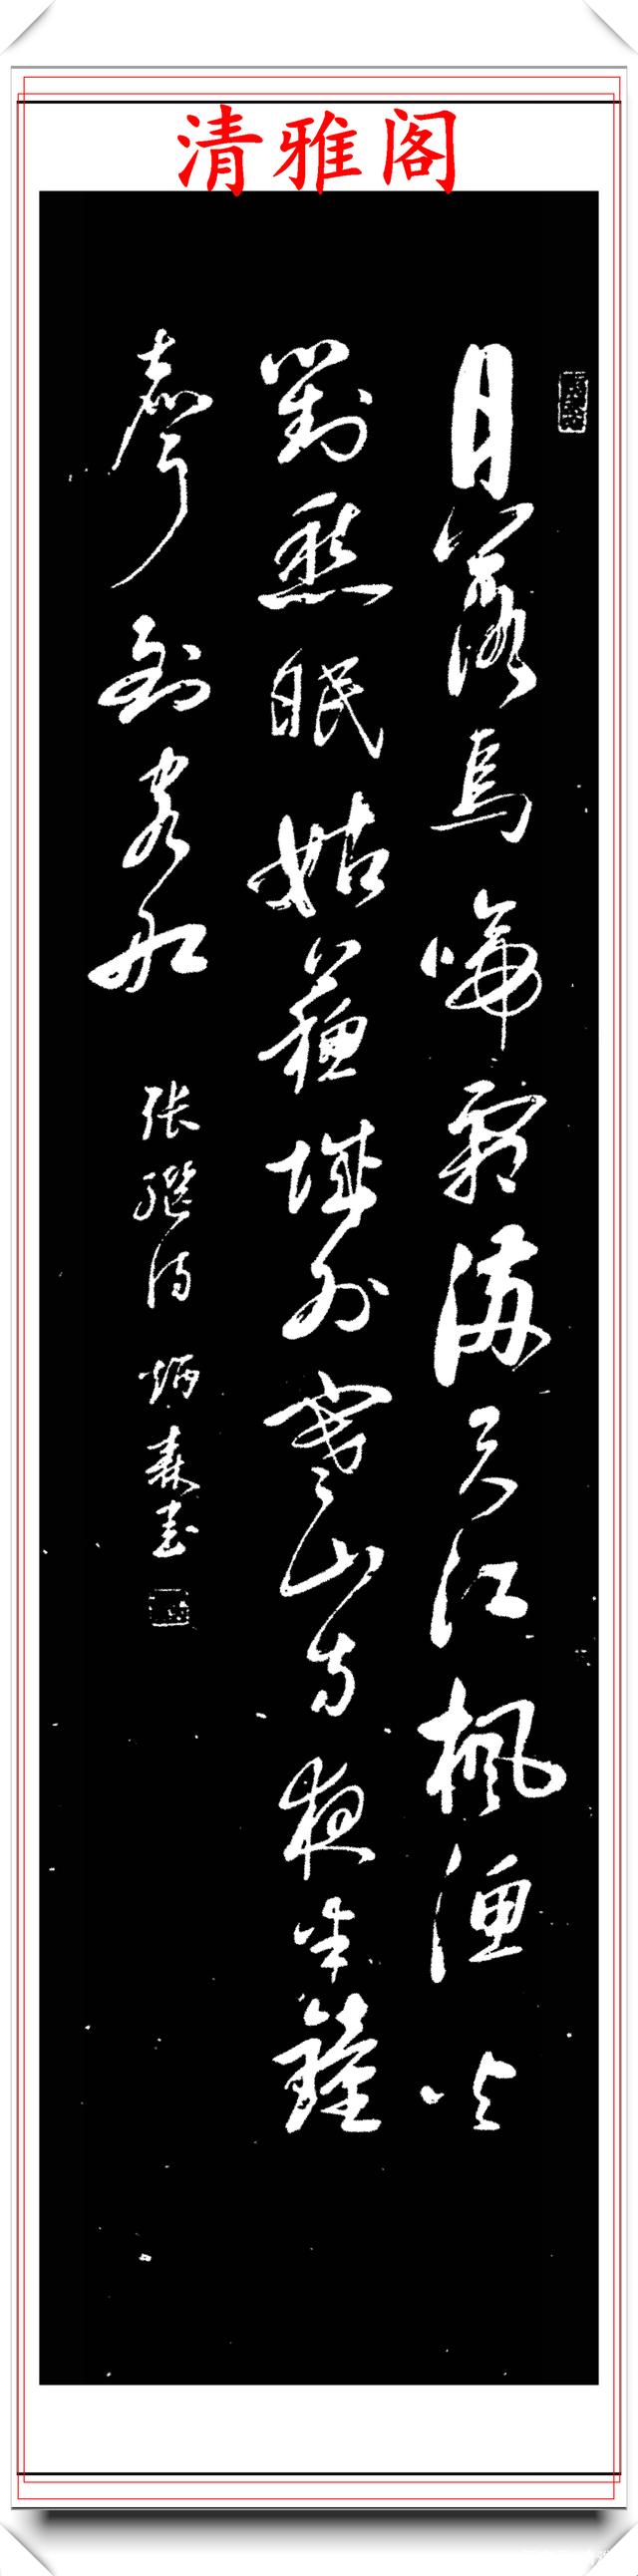 清雅阁
月落烏啼霜滿天江楓漁火
對愁眠姑蘇城外寒山寺夜半鐘
聲到客船
張繼詩 炳森書